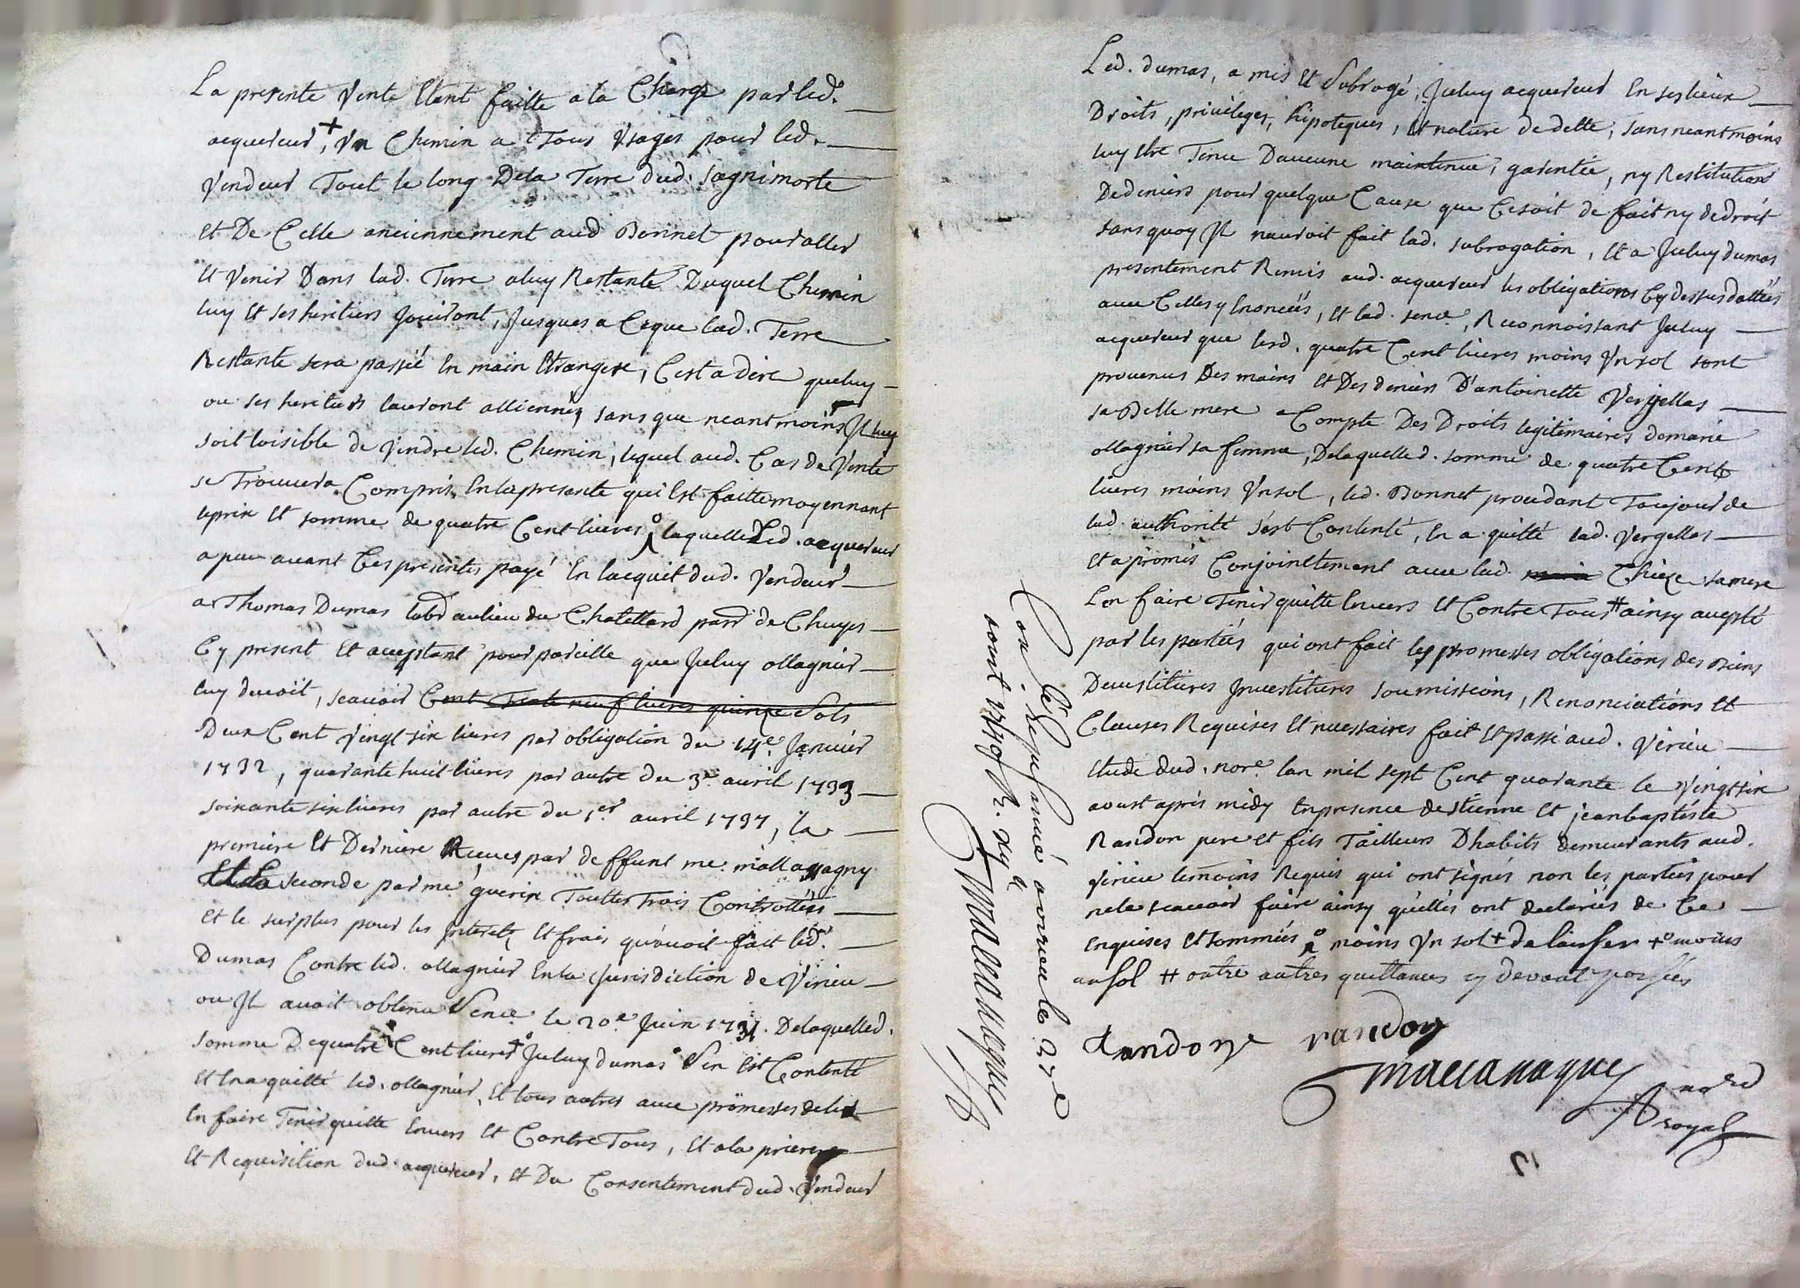 La presente vente etant faitte a la Charge par led.
acquereur + Un Chemin a Tous Usages pour led.
vendeur Tout le long De la Terre dud. Sagnimorte
et De Celle anciennement aud Bonnet pour aller
et venir Dans lad. Terre aluy Restante Duquel Chemin
luy et ses heritiers Jouiront, Jusques a Ceque lad. Terre
Restante sera passée En main Etrangere, C'est a dire queluy
ou ses heritiers lauront allienné, sans que neantmoins Il luy
soit loisible de vendre led. Chemin, lequel aud. Cas de Vente
se Trouvera Compris Enlapresente qui Est faitte moyennant
leprix et somme de quatre Cent livres laquelle Led. acquereur
a peu avant Ces presentes payé En lacquit dud. vendeur
a Thomas Dumas labr aulieu du Chatellard parr de Chuyes
Cy present et acceptant pour pareille que Jceluy ollagnier
luy devoit, scavoir Cent Trente neuf livres quinze Sols
Deux Cent vingt six livres par obligation du 14e Janvier
1732, quarante huit livres par autre du 3e avril 1733
soixante six livres par autre du 1er avril 1737, la
premiere et Derniere Reçues par deffunt me mallassagny
Et La seconde par me guerin Touttes Trois Controllées
et le surplus pour les Interets et frais qu'avoit fait led.
Dumas Contre led. ollagnier En la Jurisdiction de Virieu
ou Il avoit obtenu Sence le 20e Juin 1731. Delaquelle d.
somme De quatre Cent livres +o Jceluy dumas S'en Est Contenté
et En a quitté led. ollagnier, et tous autres avec promesses de les
En faire Tenir quitte Envers et Contre Tous, et a la priere
et Requisition dud. acquereur, et Du Consentement dud. Vendeur
Led. dumas, a mis et Subrogé Jceluy acquereur En ses lieux
Droits, privileges, hipoteques, et nature de dette, sans neantmoins
luy Etre Tenu Daucune maintenue, garentie, ny Restitution
De deniers pour quelque Cause que Ce soit de fait ny de droit
sans quoy Il nauroit fait lad. subrogation, et a Jceluy dumas
presentement Remis aud. acquereur les obligations Cy dessus dattées
avec Celles y Enoncées, et lad. sence, Reconnoissant Jceluy
acquereur que lesd. quatre Cent livres moins Un sol sont
provenus Des mains et Des deniers D'antoinette Vergellas
sa Belle mere a Compte Des Droits legitimaires de marie
ollagnier sa femme, De laquelle d. somme de quatre Cent
livres moins Un sol, led. Bonnet procedant Toujours de
lad. authorité s'est Contenté, En a quitté lad. Vergellas
et a promis Conjoinctement avec lad. Chieze sa mere
L'en faire Tenir quitte Envers et Contre Tous # ainsy accepté
par les parties qui ont fait les promesses obligations des Biens
Devestitures Investitures soumissions, Renonciations et
Clauses Requises et necessaires fait et passé aud. Virieu
Etude dud. nore lan mil sept Cent quarante le vingt six
aoust aprés midy En presence destienne et jean baptiste
Randon pere et fils Tailleurs D'habits Demeurants aud.
Virieu temoins Requis qui ont signés non les parties pour
ne le scavoir faire ainsy qu'elles ont declarées de Ce
enquises et sommées o moins Un sol + de laisser +o moins
un sol # outre autres quittances cy devant passées
Randon randon
Con. le